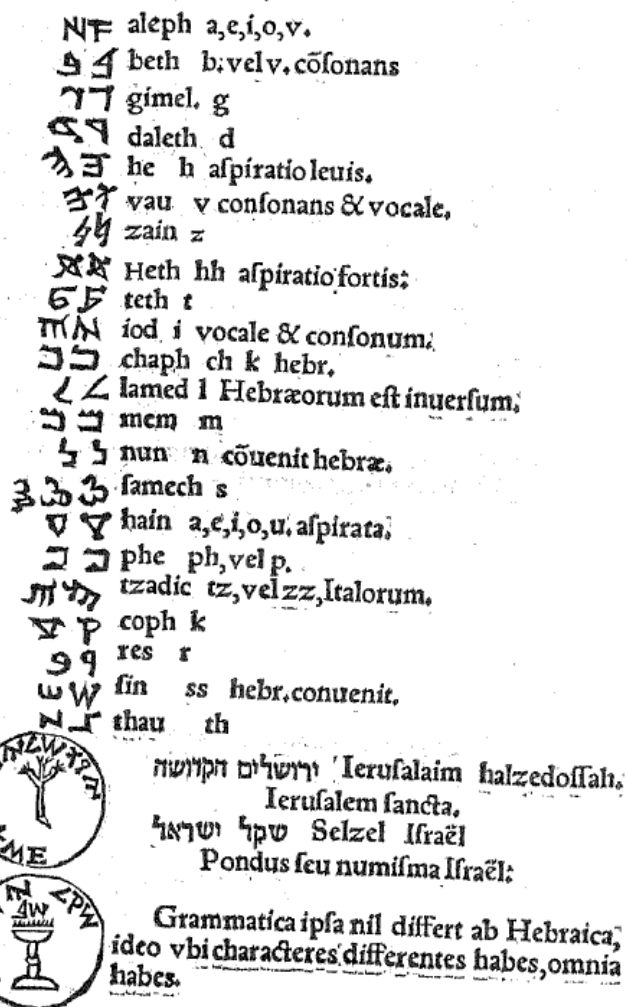 aleph a,e,i,o,v.
beth b. vel v. cõſonans
gimel. g
daleth d
he h aſpiratio leuis.
vau v conſonans & vocale.
zain z
Heth hh aſpiratio fortis:
teth t
iod i vocale & conſonum.
chaph ch k hebr.
lamed l Hebræorum eſt inuerſum.
mem m
nun n cõuenit hebræ.
ſamech s
hain a,e,i,o,u. aſpirata.
phe ph, vel p.
tzadic tz, vel zz, Italorum.
coph k
res r
ſin ss hebr. conuenit.
thau th
ירושלים הקדושה Ieruſalaim halzedoſſah.
Ieruſalem ſancta.
שקל ישראל Selzel Iſraël
Pondus ſeu numiſma Iſraël:
Grammatica ipſa nil differt ab Hebraica,
ideo vbi characteres differentes habes, omnia
habes.